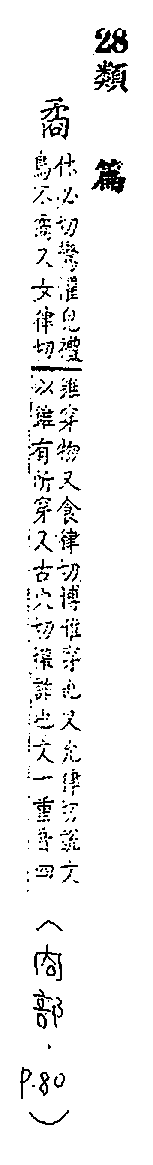 28
類篇
矞
休必切驚懼皃禮
鳥不矞又女律切
錐穿物又食律切博雅穿也又允律切說文
以錐有所穿又古穴切權詐也文一重音四
(㕯部·P.80)